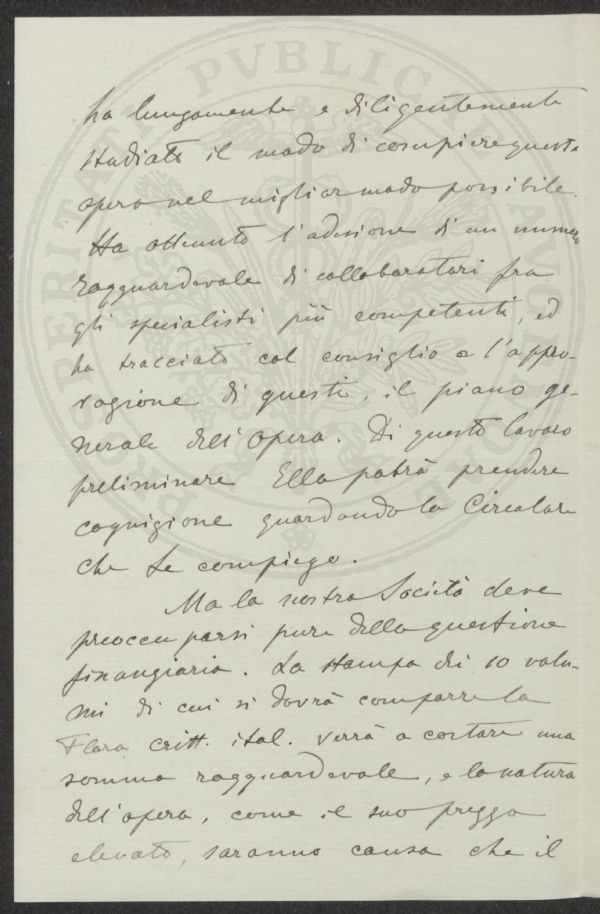 ha lungamente e diligentemente
studiato il modo di compiere questa
opera nel miglior modo possibile.
Ha ottenuto l'adesione di un numero
ragguardevole di collaboratori fra
gli specialisti più competenti, ed
ha tracciato col consiglio e l'appro-
vazione di questi, il piano ge-
nerale dell'opera. Di questo lavoro
preliminare Ella potrà prendere
cognizione guardando la Circolare
che Le compiego.
Ma la nostra Società deve
preoccuparsi pure della questione
finanziaria. La stampa dei 10 volu-
mi di cui si dovrà comporre la
Flora critt. ital. verrà a costare una
somma ragguardevole, e la natura
dell'opera, come il suo prezzo
elevato, saranno causa che il
PROSPERITATI PVBLICAE AVGENDAE